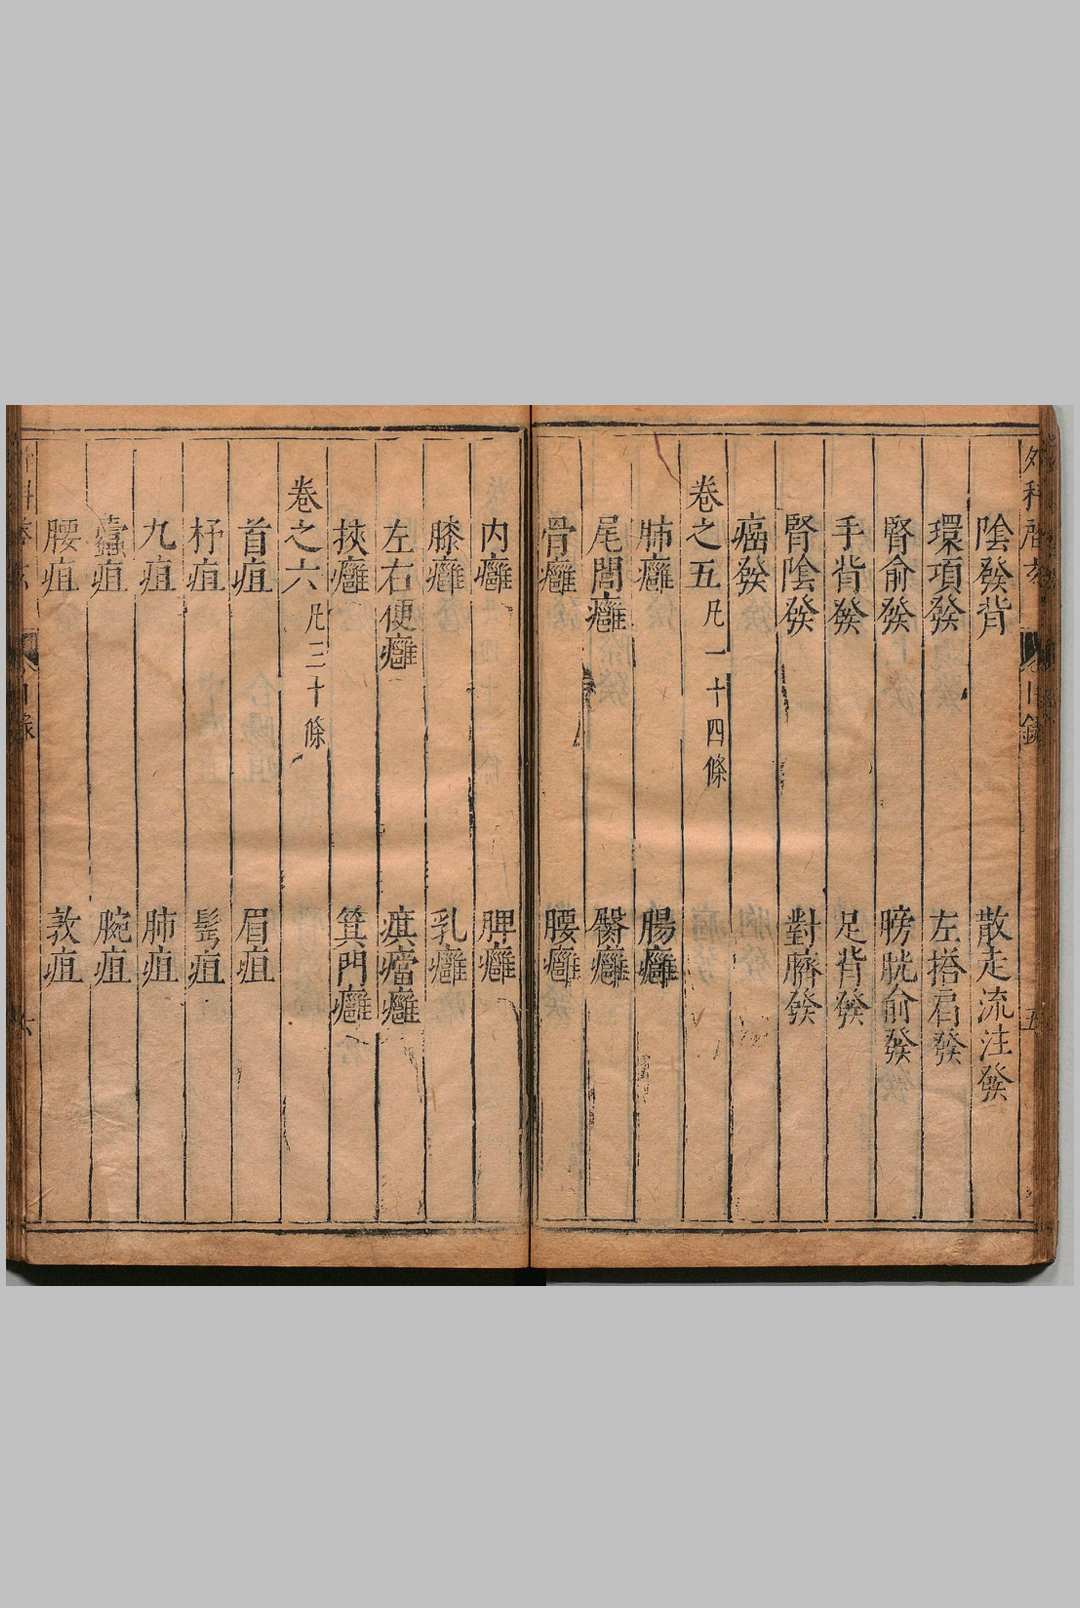 陰發背　散走流注發
環項發　左搭肩發
腎俞發　膀胱俞發
手背發　足背發
腎陰發　對臍發
痼發
卷之五凡一十四條
肺癰　腸癰
尾閭癰　臀癰
骨癰　腰癰
内癰　脾癰
膝癰　乳癰
左右便癰　㾾癅癰
挾癰　箕門癰
卷之六凡三十條
首疽　眉疽
杼疽　髩疽
九疽　肺疽
蠹疽　腕疽
腰疽　敦疽